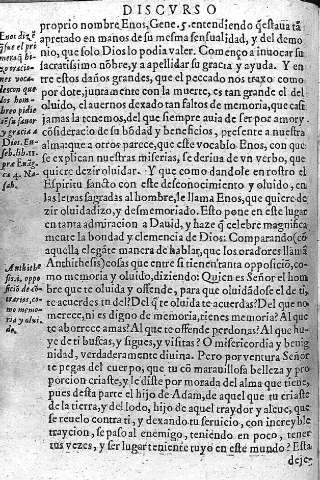 DISCVRSO
proprio nombre Enos, Gene. 5. entendiendo q̃ estaua tã
apretado en manos de su mesma sensualidad, y del demo
nio, que solo Dios lo podia valer. Començo a inuocar su
sacratissimo nõbre, y a apellidar su gracia y ayuda. Y en
tre estos daños grandes, que el peccado nos traxo como
por dote, juntamente con la muerte, es tan grande el del
oluido, el auernos dexado tan faltos de memoria, que casi
jamas la tenemos, del que siempre auia de ser por amor y
cõsideracio de su bõdad y beneficios, presente a nuestra
alma: que a otros parece, que este vocablo Enos, con que
se explican nuestras miserias, se deriua de vn verbo, que
quiere dezir oluidar. Y que como dandole en rostro el
Espiritu sancto con este desconocimiento y oluido, en
las letras sagradas al hombre, le llama Enos, que quiere de
zir oluidadizo, y desmemoriado. Esto pone en este lugar
en tanta admiracion a Dauid, y haze q̃ celebre magnifica
mente la bondad y clemencia de Dios: Comparando (cõ
aq̃lla elegãte manera de hablar, que los oradores llamã
Anthithesis) cosas que entre si tienen tanta opposiciõ, co
mo memoria y oluido, diziendo: Quien es Señor el hom
bre que te oluida y offende, para que oluidãdose el de ti,
te acuerdes tu del? Del q̃ te oluida te acuerdas? Del que no
merece, ni es digno de memoria, tienes memoria? Al que
te aborrece amas? Al que te offende perdonas? Al que hu-
ye de ti buscas, y sigues, y visitas? O misericordia y benig
nidad, verdaderamente diuina. Pero por ventura Señor
te pegas del cuerpo, que tu cõ marauillosa belleza y pro
porcion criaste, y le diste por morada del alma que tiene,
pues desta parte el hijo de Adam, de aquel que tu criaste
de la tierra, y del lodo, hijo de aquel traydor y aleue, que
se reuelo contra ti, y dexando tu seruicio, con increyble
traycion, se paso al enemigo, teniendo en poco, tener
tus vezes, y ser lugar teniente tuyo en este mundo? Esta
deje-
Enos diz e
oracio=
nes vocа
les con que
los hom-
bres pidie
su gracia a
Dios. Eu-
seb. lib. 11.
Anthithe
sis, oppo
siciõ de cõ
trarios, co
mo memo
ria y olui-
do.